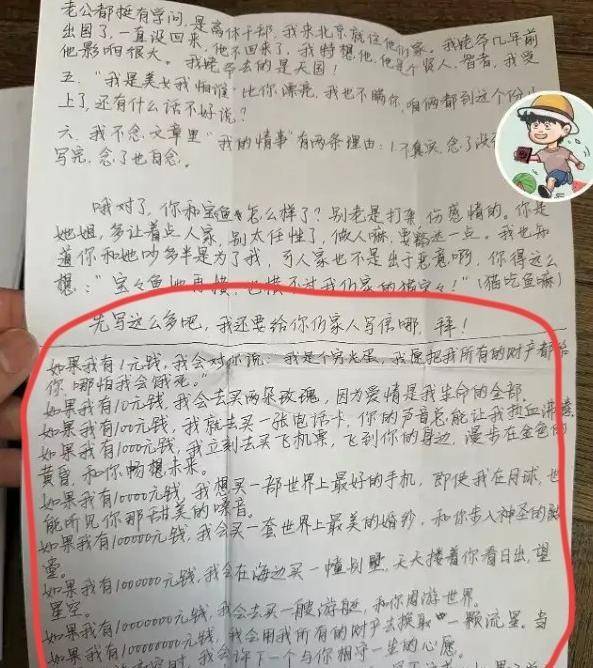 老公都挺有学问,是离休干部,我来北京就住他们家。我姥爷几年前
出国了,一直没回来,他不回来了,我特想他,他是个贤人、智者,我受
他影响很大。我姥爷去的是天国!
五.“我是美女我怕谁”比你漂亮,我也不瞒你,咱俩都到这个份儿
上了,还有什么话不好说?
六.我不念,文章里“我的情事”有两条理由:1不真实,念了没
写完,念了也白念。
哦对了,你和宝鱼怎么样了?别老是打架伤感情的。你是
她姐,多让着点人家,别太任性了,做人嘛,要豁达一点。我也知
道你和她吵多半是为了我,可人家也不是出于恶意啊,你得这么
想:“宝鱼她再横,也横不过我们家的猫宝宝!”(猫吃鱼嘛)
先写这么多吧,我还要给你们家人写信哪,拜!
如果我有1元钱,我会对你说:我是个穷光蛋,我愿把我所有的财产都给
你,哪怕我会饿死。”
如果我有10元钱,我会去买两朵玫瑰,因为爱情是我生命的全部。
如果我有100元钱,我就去买一张电话卡,你的声音总能让我热血沸腾
如果我有1000元钱,我立刻去买飞机票,飞到你的身边,漫步在金色的
黄昏,和你畅想未来。
如果我有10000元钱,我想买一部世界上最好的手机,即使我在月球,也
能听见你那甜美的嗓音。
如果我有100000元钱,我会买一套世界上最美的婚纱,和你步入神圣的殿
堂。
如果我有1000000元钱,我会在海边买一幢别墅,天天搂着你看日出,望
星空。
如果我有10000000元钱,我会去买一艘游艇,和你周游世界。
如果我有100000000元钱,我会用我所有的财产去换取一颗流星。当
我会许下一个与你相守一生的心愿。